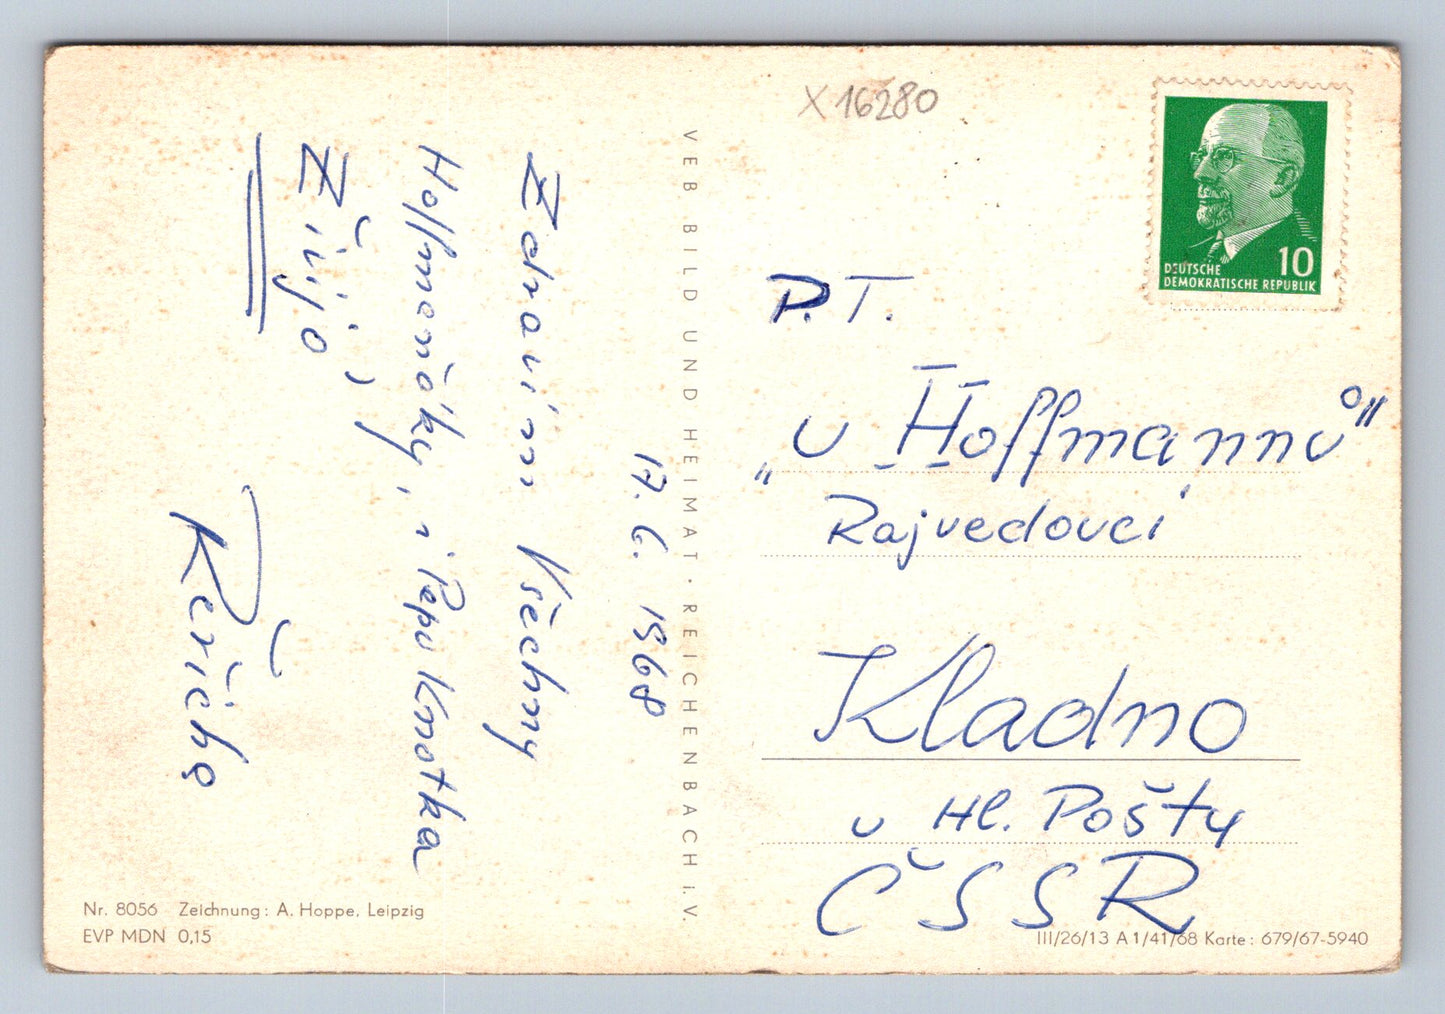 X 16280
17. 6. 1968
Zdravím Všechny
Hoffmaňáky, i Pepu Knotka
Žijo,
Řeřicha
VEB BILD UND HEIMAT · REICHENBACH i. V.
DEUTSCHE
DEMOKRATISCHE REPUBLIK
10
P. T.
„u Hoffmannů"
Rajvedoucí
Kladno
u Hl. Pošty
ČSSR
Nr. 8056 Zeichnung: A. Hoppe, Leipzig
EVP MDN 0,15
III/26/13 A 1/41/68 Karte: 679/67-5940